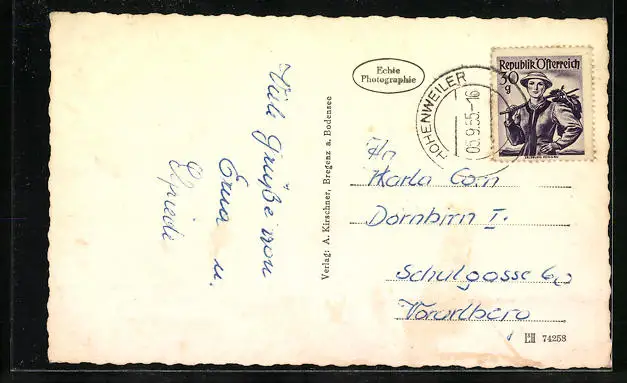 Viele Grüße von
Erna u.
Elfriede
Echte
Photographie
Verlag: A. Kirschner, Bregenz a. Bodensee
HOHENWEILER
05.9.55-16
Republik Österreich
30
g
An
Karla
Dornbirn I.
Schulgasse
Vorarlberg
74258